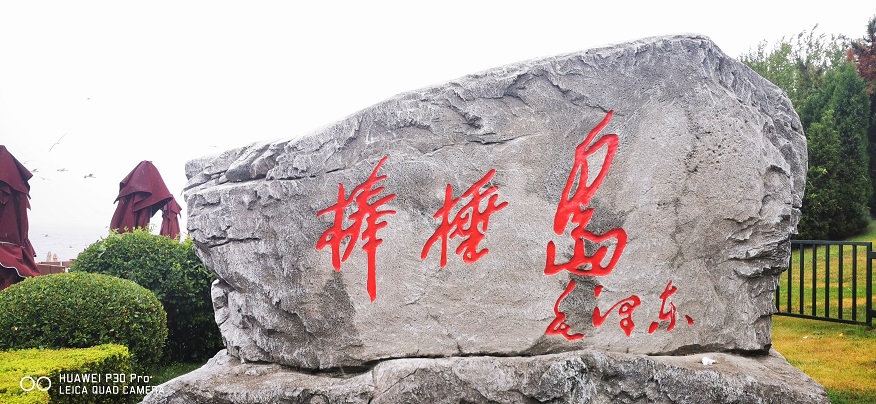 棒棰岛
毛泽东
HUAWEI P30 Pro
LEICA QUAD CAMERA